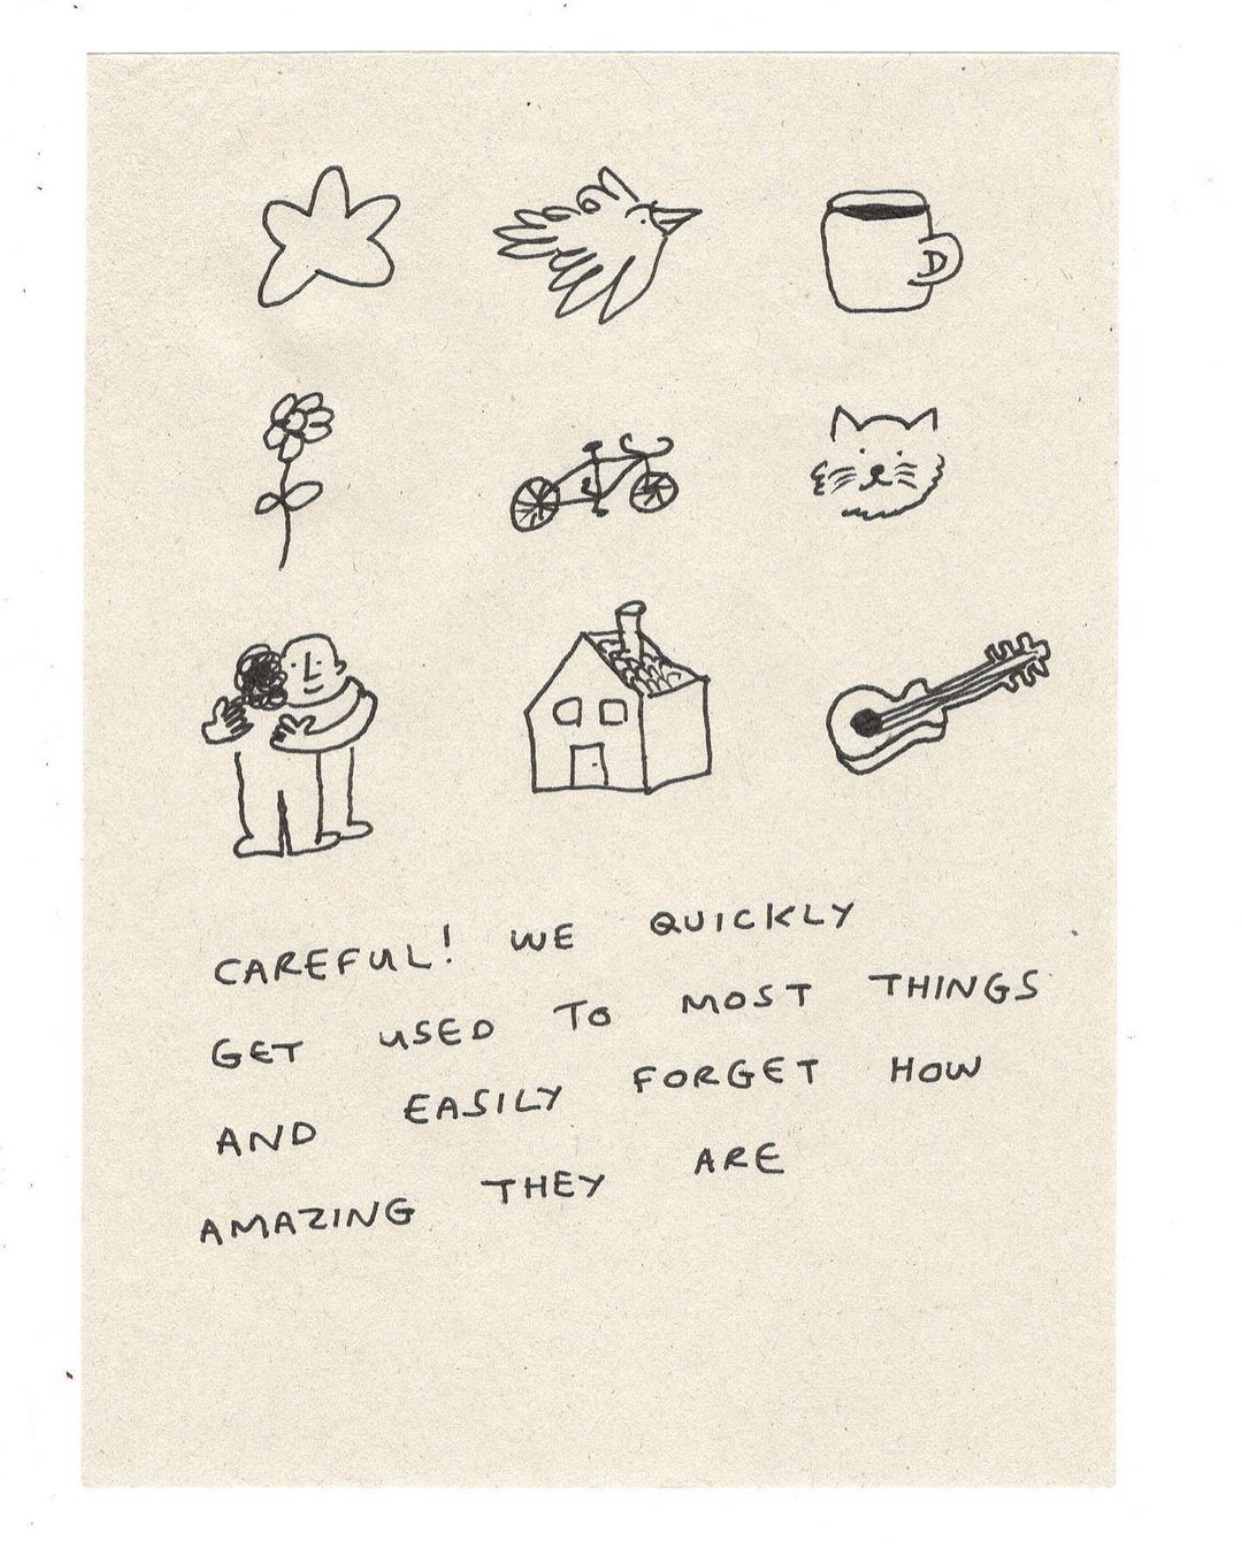 CAREFUL! WE QUICKLY
GET USED TO MOST THINGS
AND EASILY FORGET HOW
AMAZING THEY ARE